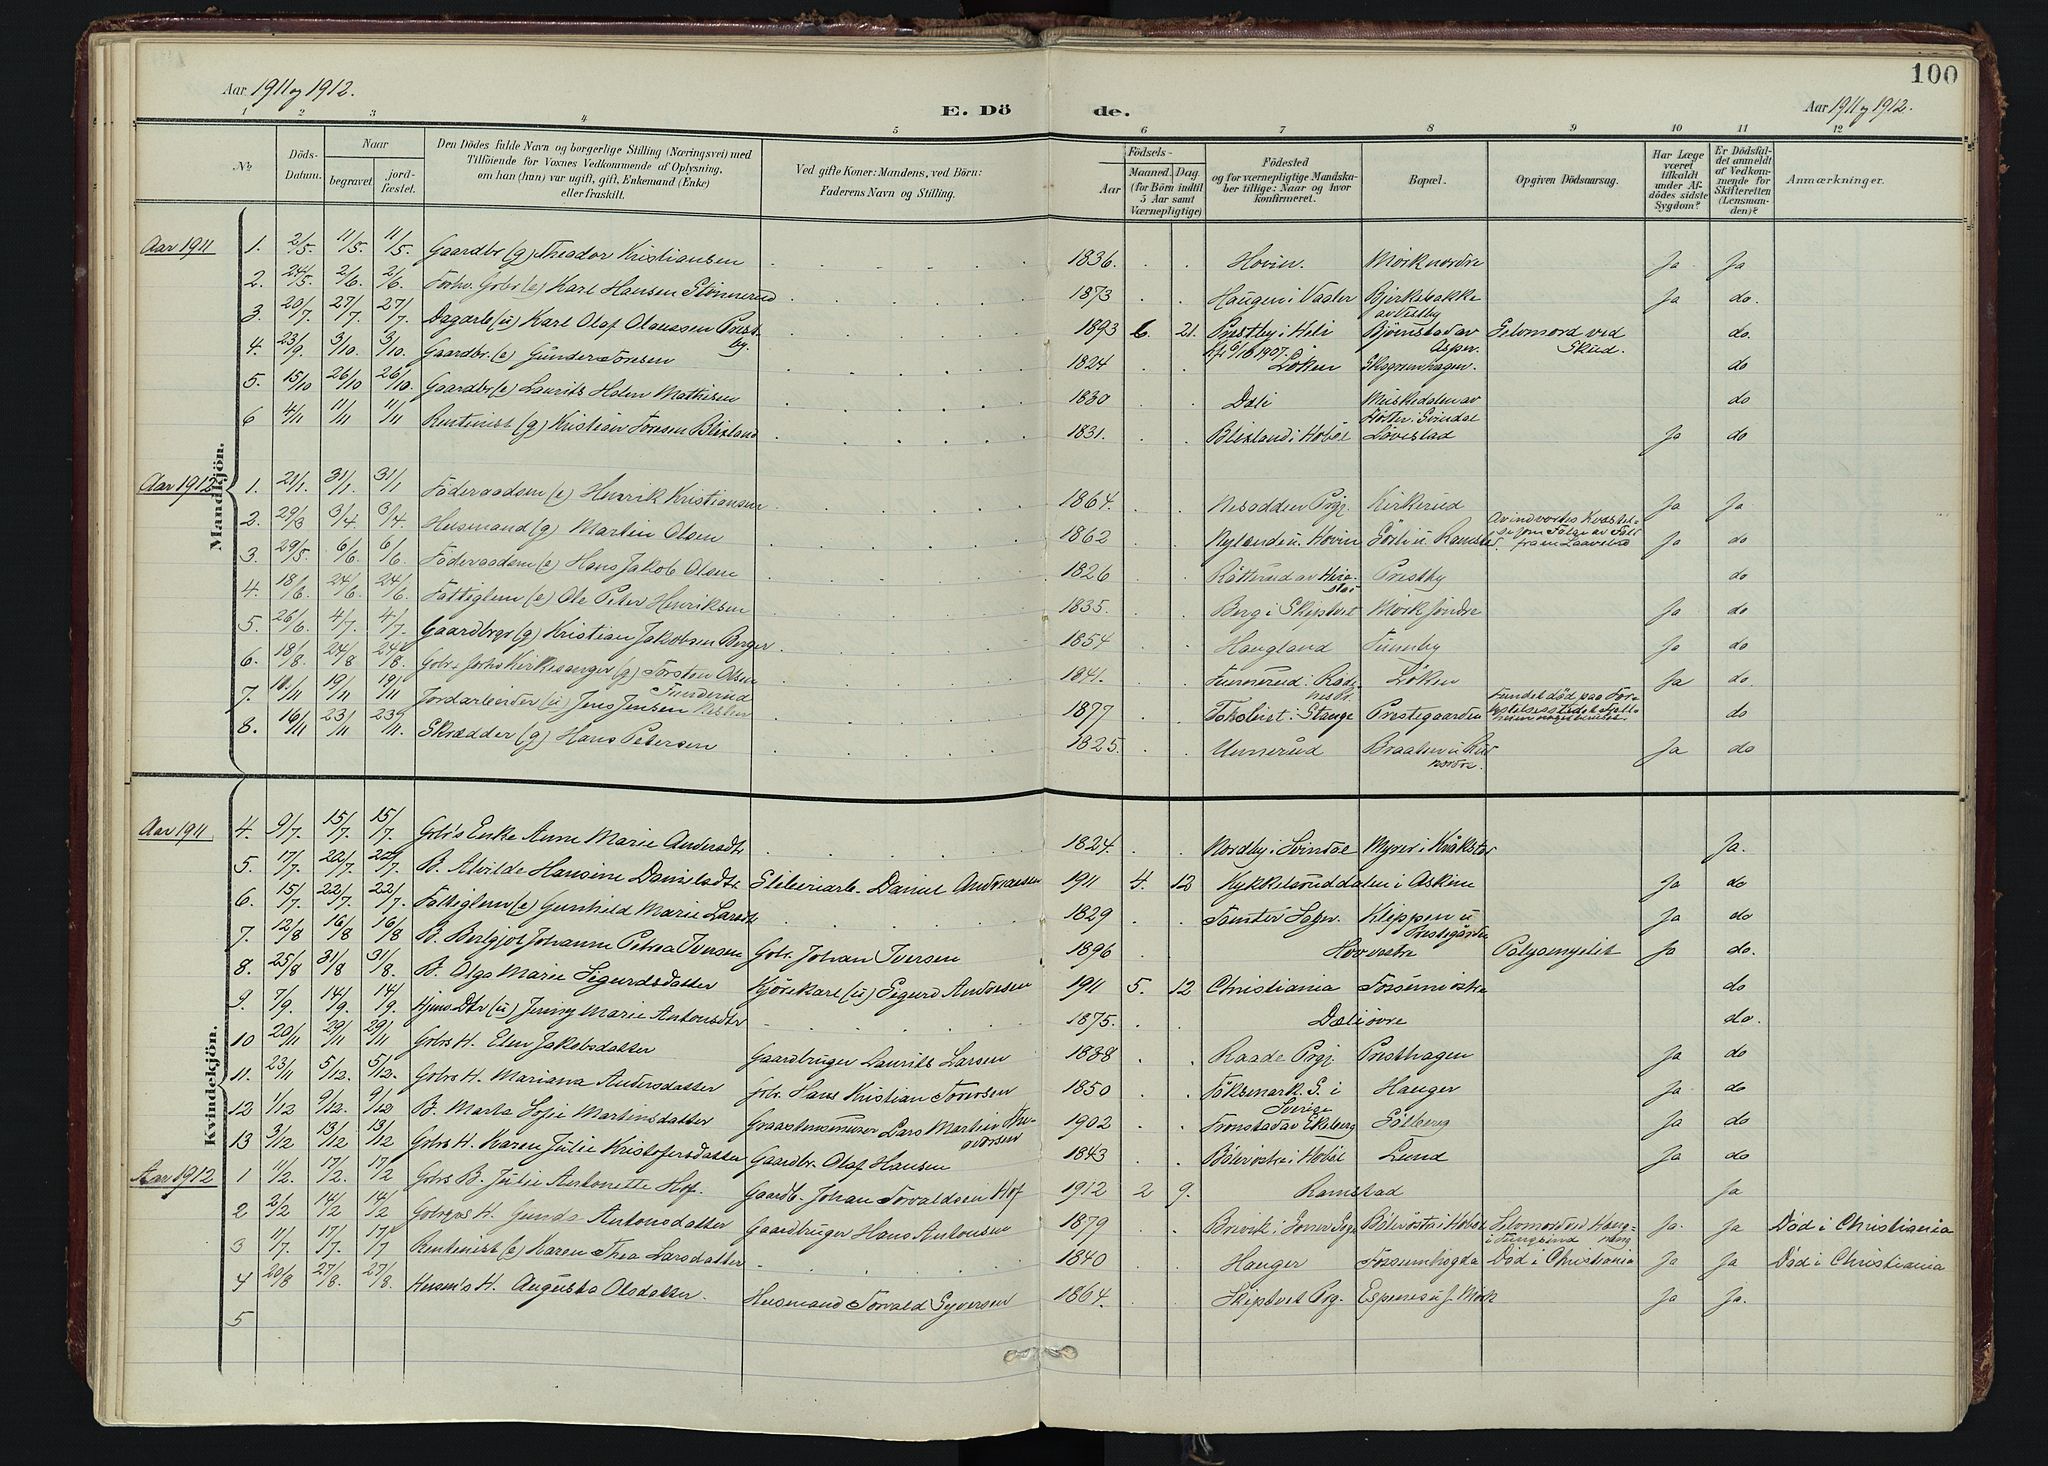 100
Aar 1911 og 1912.
E. Dö
de.
Aar 1911 og 1912.
1 2 3 4 5 6 7 8 9 10 11 12
No. Döds-Datum. Naar begravet. jordfæstet.
Den Dödes fulde Navn og borgerlige Stilling (Næringsvei) med
Tilföiende for Voxnes Vedkommende af Oplysning,
om han (hun) var ugift, gift, Enkemand (Enke)
eller fraskilt.
Ved gifte Koner: Mandens, ved Börn:
Faderens Navn og Stilling.
Födsels-
Aar Maaned. Dag.
(for Börn indtil
5 Aar samt
Værnepligtige)
Födested
og for værnepligtige Mandska-
ber tillige: Naar og hvor
konfirmeret.
Bopæl.
Opgiven Dödsaarsag.
Har Læge
været
tilkaldt
under Af-
dödes sidste
Sygdom?
Er Dödsfal-
det anmeldt
af Vedkom-
mende for
Skifteretten
(Lensman-
den)?
Anmærkninger.
Mandkjön.
Aar 1911 1. 2/5. 11/5. 11/5. Gaardbr (g) Theodor Kristiansen 1836. Hovin. Mörk nordre Ja Ja
2. 24/5. 2/6. 2/6. Forhv. Gbr (e) Karl Hansen 1873 Haugen i Vaaler Bjerkebakke Ja do.
3. 20/7. 27/7. 27/7. Dagarb (u) Karl Olaf Olaussen Prestby. 1893 6. 21. Prestby i Heli Björnstad av Selvmord ved Skud. do.
4. 23/9. 3/10. 3/10. Gaardbr. (e) Gunder Toresen 1824 Löken Skogrenhagen. do
5. 15/10 26/10 26/10. Gaardbr (e) Laurits Holm Mathisen 1830 Dæli Muskedalen av do
6 4/11 11/11 11/11 Rentenist (g) Kristian Toresen Blixland 1831. Blixland i Hobøl Lövestad Ja do
Aar 1912 1. 21/1. 31/1. 31/1 Föderaadsm (e) Henrik Kristiansen 1864. Nesodden Prgj. Kirkerud Ja Ja
2. 29/3 3/4. 3/4. Husmand (g) Martin Olsen 1862 Nylænde u. Hovin Ja do
3. 29/5. 6/6. 6/6. Föderaadsm (e) Hans Jakob Olsen 1826 Prestby do
4. 18/6. 24/6. 24/6. Fattiglem (e) Ole Peter Henriksen 1835. Berg i Skiptvet Mörk söndre Ja do
5. 26/6. 4/7. 4/7. Gaardbrgr (g) Kristian Jakobsen Berger 1854 Haugland Ja do
6. 18/8. 24/8 24/8. Gbr. Kirkesanger (g) Torsten Olsen Funderud 1841. Löken Ja do.
7. 19/11 19/11 Jordarbeider (u) Jens Jensen 1877 i Stange Prestegaarden do
8. 16/11 23/11 23/11. Skrædder (g) Hans Petersen 1825. Unnerud Ja do
Kvindekjön.
Aar 1911 4. 9/7. 15/7. 15/7. Gbr's Enke Anne Marie Andersdtr 1824. Nordby i Svindal Myrer i Kråkstad Ja.
5. 17/7. 22/7. 22/7. B. Alvilde Hansine Danielsdtr. Daniel Andreassen 1911 4. 12 Kykkelsruddalen i Askim Ja do
6. 15/7. 22/7. 22/7. Fattiglem (e) Gunhild Marie Larsdtr 1829 Tomter Sogn. Kleppen u Prestegården Ja do
7. 12/8 16/8 16/8 B. Bergljot Johanne Petrea Iversen Gbr. Johan Iversen 1896 Polyomyelit Ja do.
8. 25/8 31/8 31/8. B. Olga Marie Sigurdsdatter Kjörekarl (u) Sigurd Andersen 1911 5. 12 Christiania do
9. 7/9. 14/9. 14/9. Hjms. Dtr (u) Jenny Marie Antonsdtr 1875. Dæli övre do.
10 20/11 29/11 29/11 Gbrs H. Elen Jakobsdatter Gaardbruger Laurits Larsen 1838 Raade Prgj. Presthagen Ja do
11. 23/11 5/12. 5/12. Gbrs H. Mariana Andersdatter Gbr. Hans Kristian Torersen 1850 i Sverige Hauger Ja do
12 1/12 9/12. 9/12 B. Marta Sofie Martinsdatter Lars Martin 1902 Tronstad av Ekeberg Sölberg Ja do
13. 3/12 13/12 13/12 Gbrs H. Karen Julie Kristofersdatter Gaardbr. Olaf Hansen 1843 Böler östre i Hobøl Lund Ja do
Aar 1912 1 11/2. 17/2. 17/2 Gbrs B. Julie Antonette Hof. Gaardb. Johan Torvaldsen Hof 1912 2 9. Ramstad Ja
2 2/2 14/2 14/2 H. Gunda Antonsdatter Gaardbruger Hans Antonsen 1879 Ja. Ja Död i Christiania
3 11/7. 17/7. 17/7 Rentenist (e) Karen Thea Larsdatter 1840 Hauger Död i Christiania Ja Ja Död i Christiania
4 20/8 27/8. 27/8. Husm's H. Augusta Olsdatter. Husmand Torvald Syversen 1864. Skiptvet Prg. Espenes u. s. Mörk Ja Ja.
5